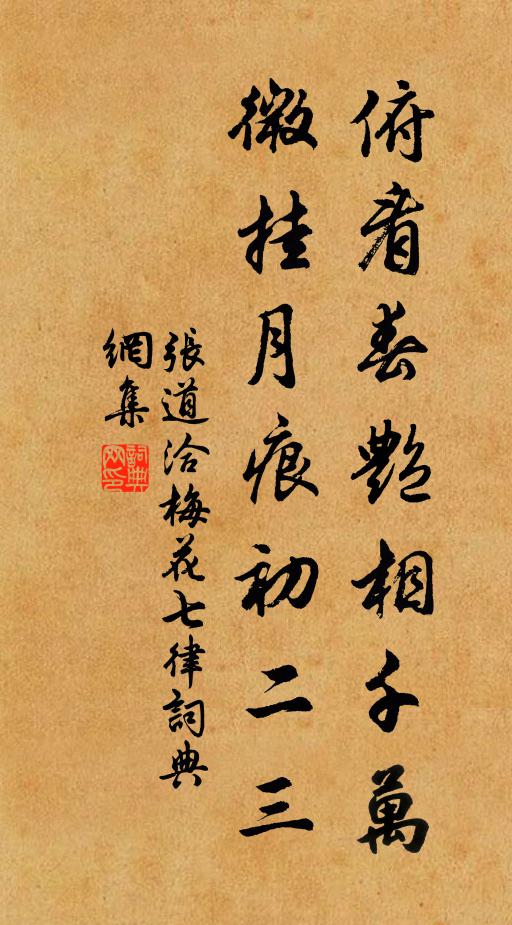 俯看春艷相千萬
微挂月痕初二三
張道洽梅花七律詞典
網集
詞典
网印